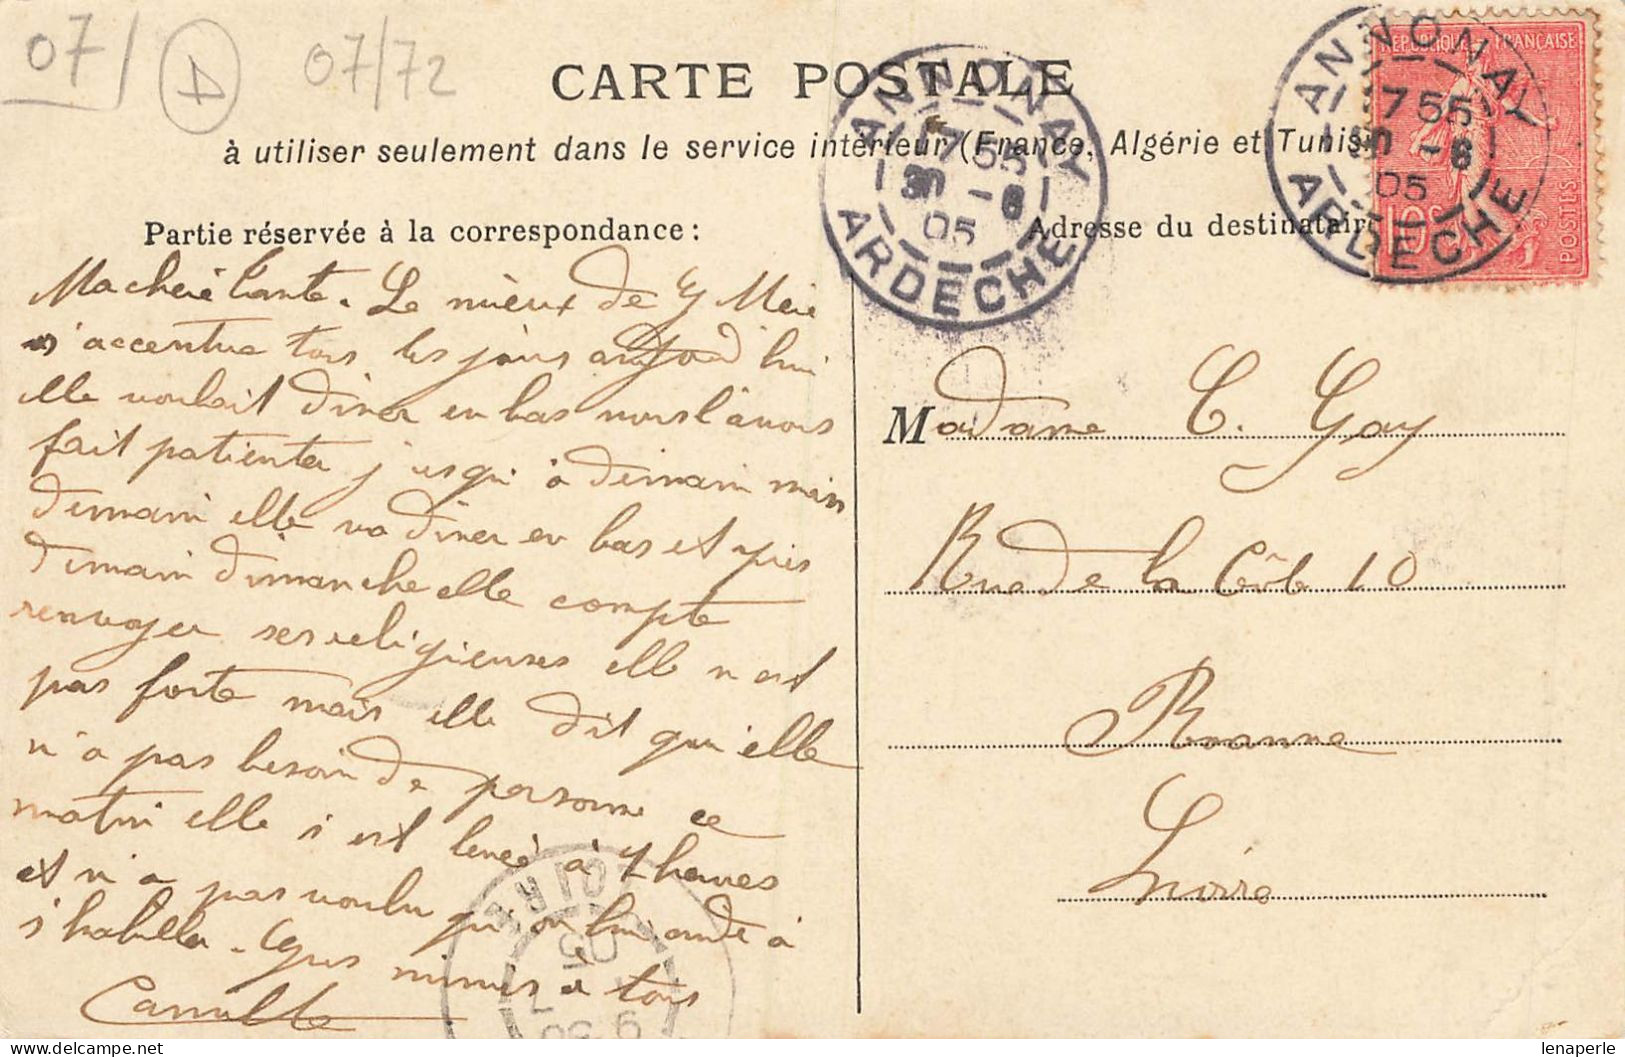 07/ D 07/72
CARTE POSTALE
à utiliser seulement dans le service intérieur (France, Algérie et Tunisie
ANNONAY
7 55
30 - 6
05
ARDECHE
ANNONAY
7 55
30 - 6
05
ARDECHE
REPUBLIQUE FRANÇAISE
10c
POSTES
Partie réservée à la correspondance :
Ma cherie tante. Le mieux de Mère
s'accentue tous les jours aujourd'hui
elle voulait diner en bas nous l'avons
fait patienter jusqu'à demain mais
demain elle va diner en bas et puis
demain dimanche elle compte
renvoyer ses religieuses elle n'est
pas forte mais elle dit qu'elle
n'a pas besoin de personne ce
matin elle s'est levée à 7 heures
et n'a pas voulu qu'on lui aide à
s'habiller. Gros mimis à tous
Camille
Adresse du destinataire
Madame C. Gay
Rue de la Côte 10
Roanne
Loire
LOIRE
05
lenaperle